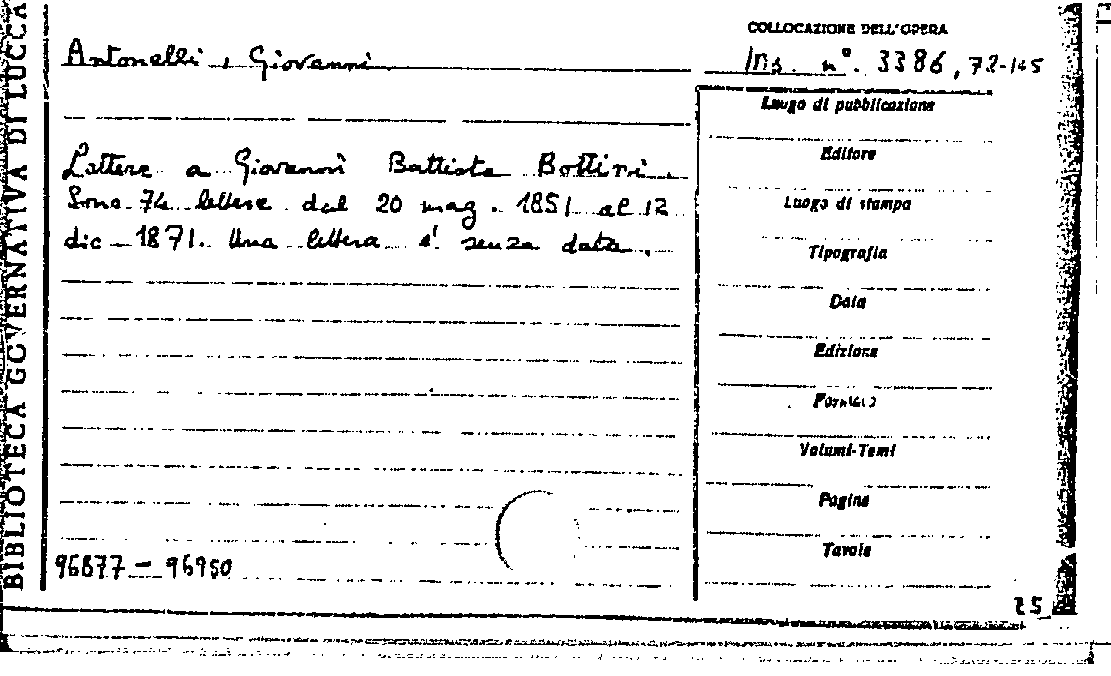 BIBLIOTECA GOVERNATIVA DI LUCCA
Antonelli, Giovanni
COLLOCAZIONE DELL'OPERA
Ins. n°. 3386, 72-145
Lettere a Giovanni Battista Bottini.
Sono 74 lettere dal 20 mag. 1851 al 12
dic. 1871. Una lettera e' senza data.
96877 - 96950
Luogo di pubblicazione
Editore
Luogo di stampa
Tipografia
Data
Edizione
Formato
Volumi-Tomi
Pagine
Tavole
25